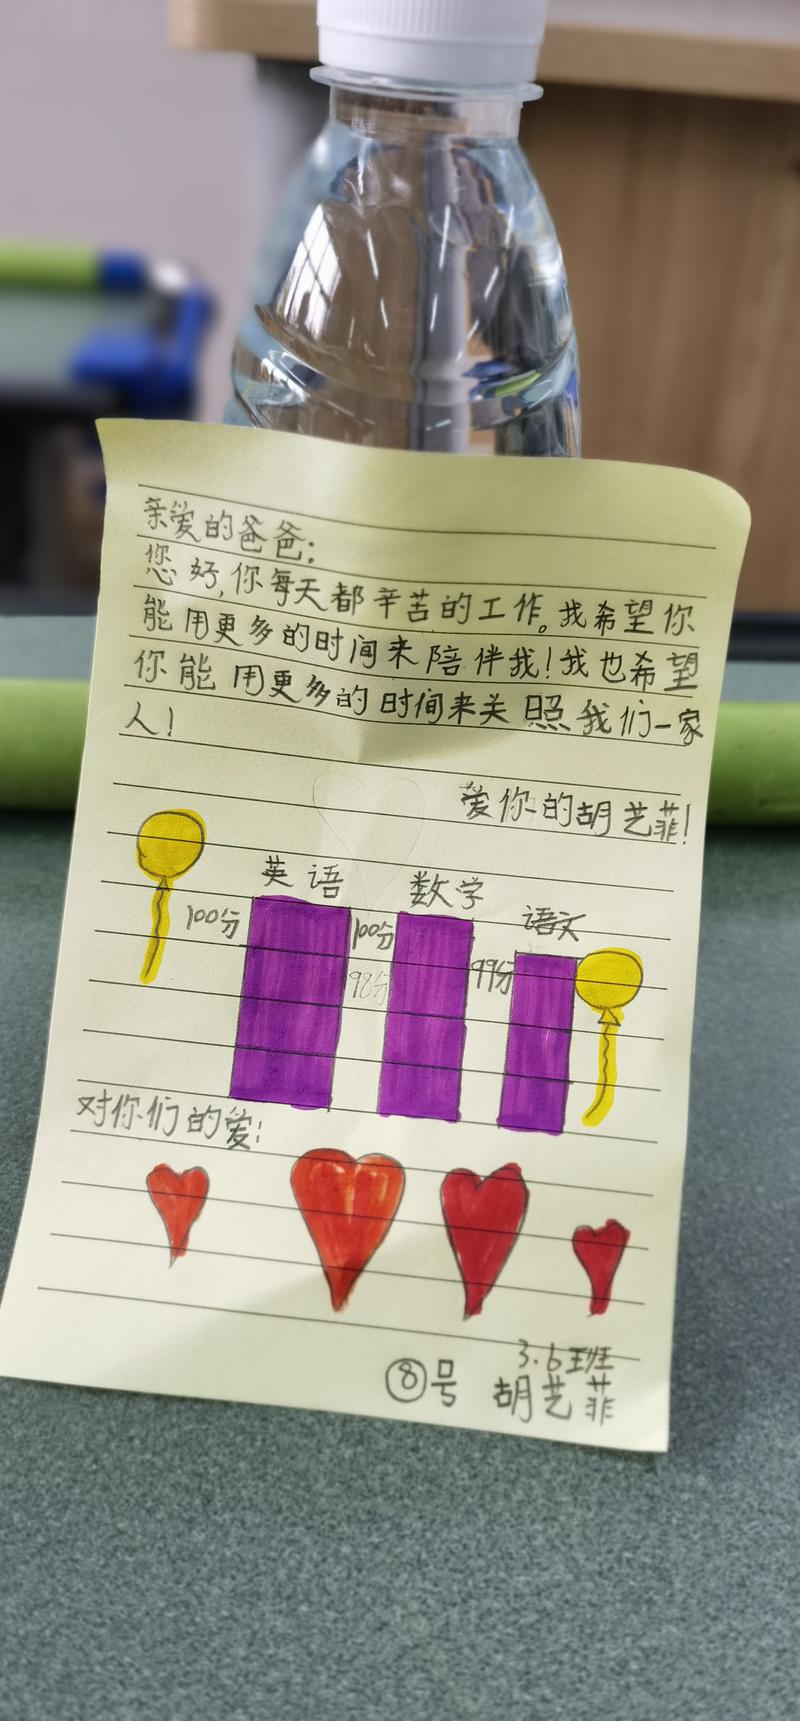 亲爱的爸爸:
您好,你每天都辛苦的工作。我希望你
能用更多的时间来陪伴我!我也希望
你能用更多的时间来关照我们一家
人!
爱你的胡艺菲!
英语 数学 语文
100分 100分 99分
98分
对你们的爱:
3.6班
⑧号 胡艺菲